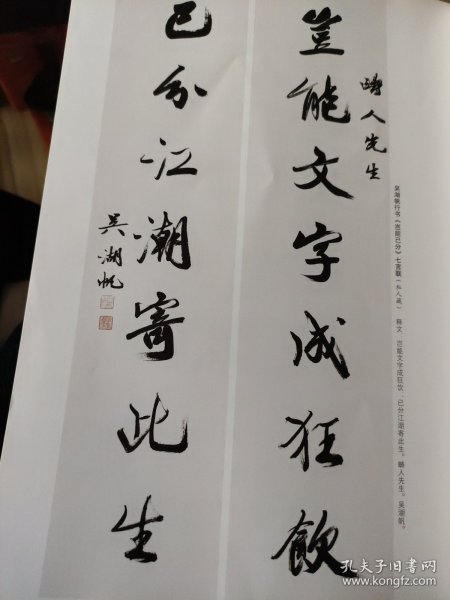 疇人先生
豈能文字成狂飲
已分江湖寄此生
吳湖帆
吴湖帆行书《岂能已分》七言联（私人藏） 释文：岂能文字成狂饮，已分江湖寄此生。畴人先生。吴湖帆。
孔夫子旧书网
www.kongfz.com